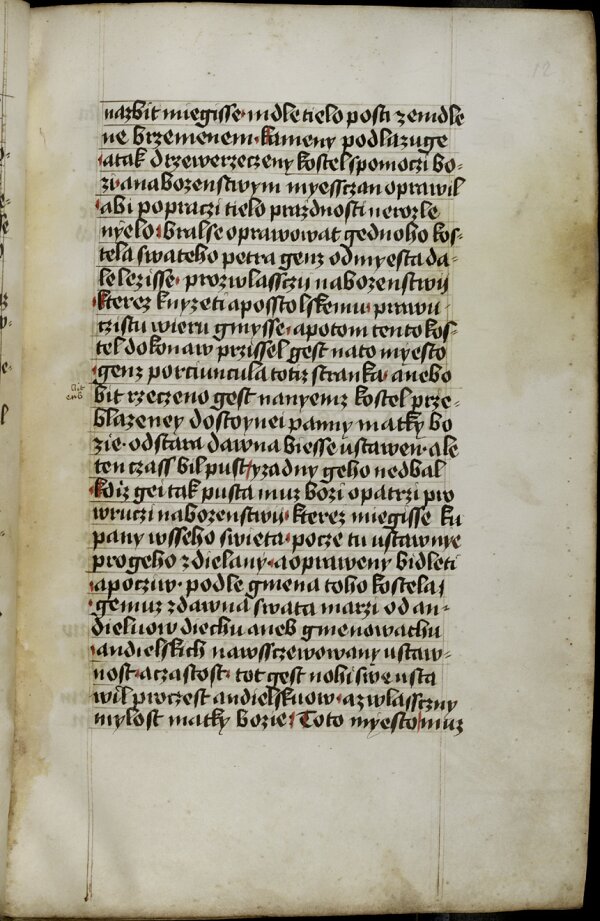 12
narbit miegisse· mdle tielo posti zemdle
ne brzemenem· kameny podlazuge
atak drzewerzeczeny kostel spomoczi bo-
zi· anabozenstwym myessczan oprawil
abi popraczi tielo prazdnosti nerozle
nyelo· bral se oprawowat gednoho kos-
tela swateho petra genz odmyesta da-
le lezisse· prozwlasscziy nabozenstwy
kterez knyzeti aposstolskemu· prawu-
czistu wieru gmysse· apotom tento kos-
tel dokonaw przissel gest nato myesto
genz porciuncula totiz stranka· anebo
bit rzeczeno gest nanyemz kostel prze-
blazeney dostoynei panny matky bo
zie· odstara dawna biesse ustawen· ale
ten czass bil pust yzadny geho nedbal
kdiz gei tak pusta muz bozi opatrzi pro
wruczi nabozenstwy· kterez miegisse ku
pany wsseho swieta· pocze tu ustawnye
progeho zdielany· aopraweny bidleti
apoczuw· podle gmena toho kostela
gemuz zdawna swata marzi od an-
dieluow diechu aneb gmenowachu
andielskich nawssczewowany ustaw-
nost· aczastost· tot gest nohi swe usta
wil proczest andielskuow· azwlassczny
mylost matky bozie· Toto myesto muz